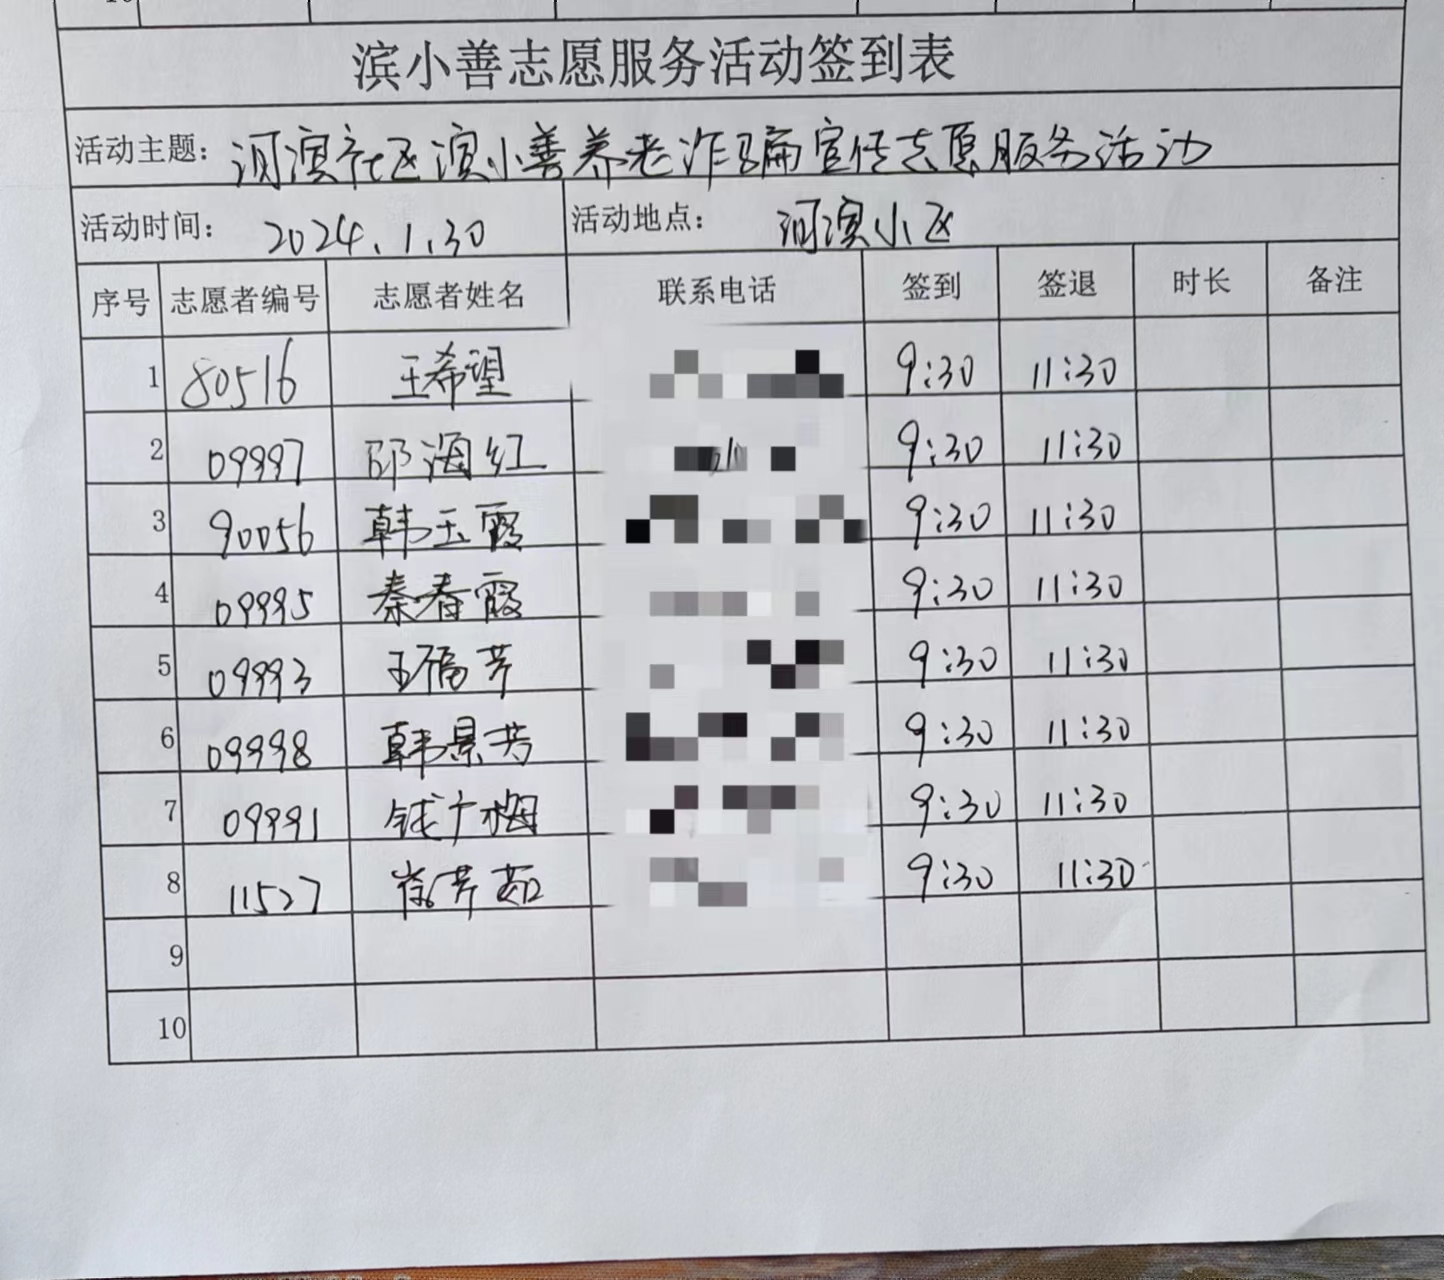 滨小善志愿服务活动签到表
活动主题: 河滨社区滨小善养老诈骗宣传志愿服务活动
活动时间: 2024.1.30 活动地点: 河滨小区
序号 志愿者编号 志愿者姓名 联系电话 签到 签退 时长 备注
1 80516 王希望 9:30 11:30
2 09997 邵海红 9:30 11:30
3 90056 韩玉霞 9:30 11:30
4 09995 秦春霞 9:30 11:30
5 09993 王福芹 9:30 11:30
6 09998 韩景芳 9:30 11:30
7 09991 钱广梅 9:30 11:30
8 11527 9:30 11:30
9
10